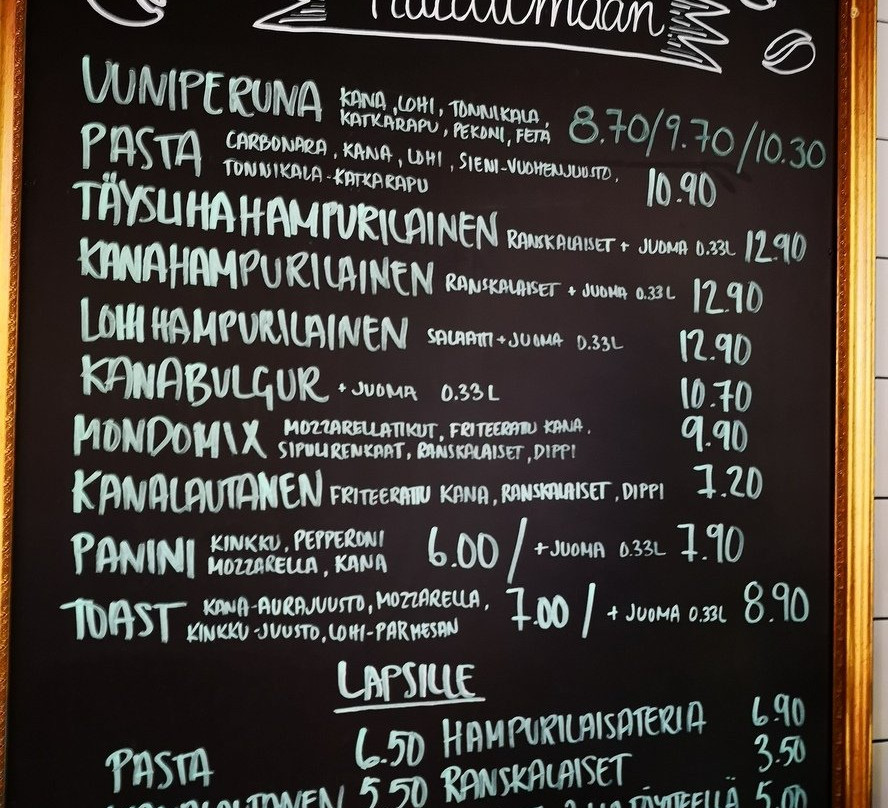 UUNIPERUNA KANA, LOHI, TONNIKALA, KATKARAPU, PEKONI, FETA 8.70/9.70/10.30
PASTA CARBONARA, KANA, LOHI, SIENI-VUOHENJUUSTO, TONNIKALA-KATKARAPU 10.90
TÄYSLIHAHAMPURILAINEN RANSKALAISET + JUOMA 0.33L 12.90
KANAHAMPURILAINEN RANSKALAISET + JUOMA 0.33L 12.90
LOHIHAMPURILAINEN SALAATTI + JUOMA 0.33L 12.90
KANABULGUR + JUOMA 0.33L 10.70
MONDOMIX MOZZARELLATIKUT, FRITEERATTU KANA, SIPULIRENKAAT, RANSKALAISET, DIPPI 9.90
KANALAUTANEN FRITEERATTU KANA, RANSKALAISET, DIPPI 7.20
PANINI KINKKU, PEPPERONI MOZZARELLA, KANA 6.00 / + JUOMA 0.33L 7.90
TOAST KANA-AURAJUUSTO, MOZZARELLA, KINKKU-JUUSTO, LOHI-PARMESAN 7.00 / + JUOMA 0.33L 8.90
LAPSILLE
PASTA 6.50 HAMPURILAISATERIA 6.90
5.50 RANSKALAISET 3.50
TÄYTTEELLÄ 5.00